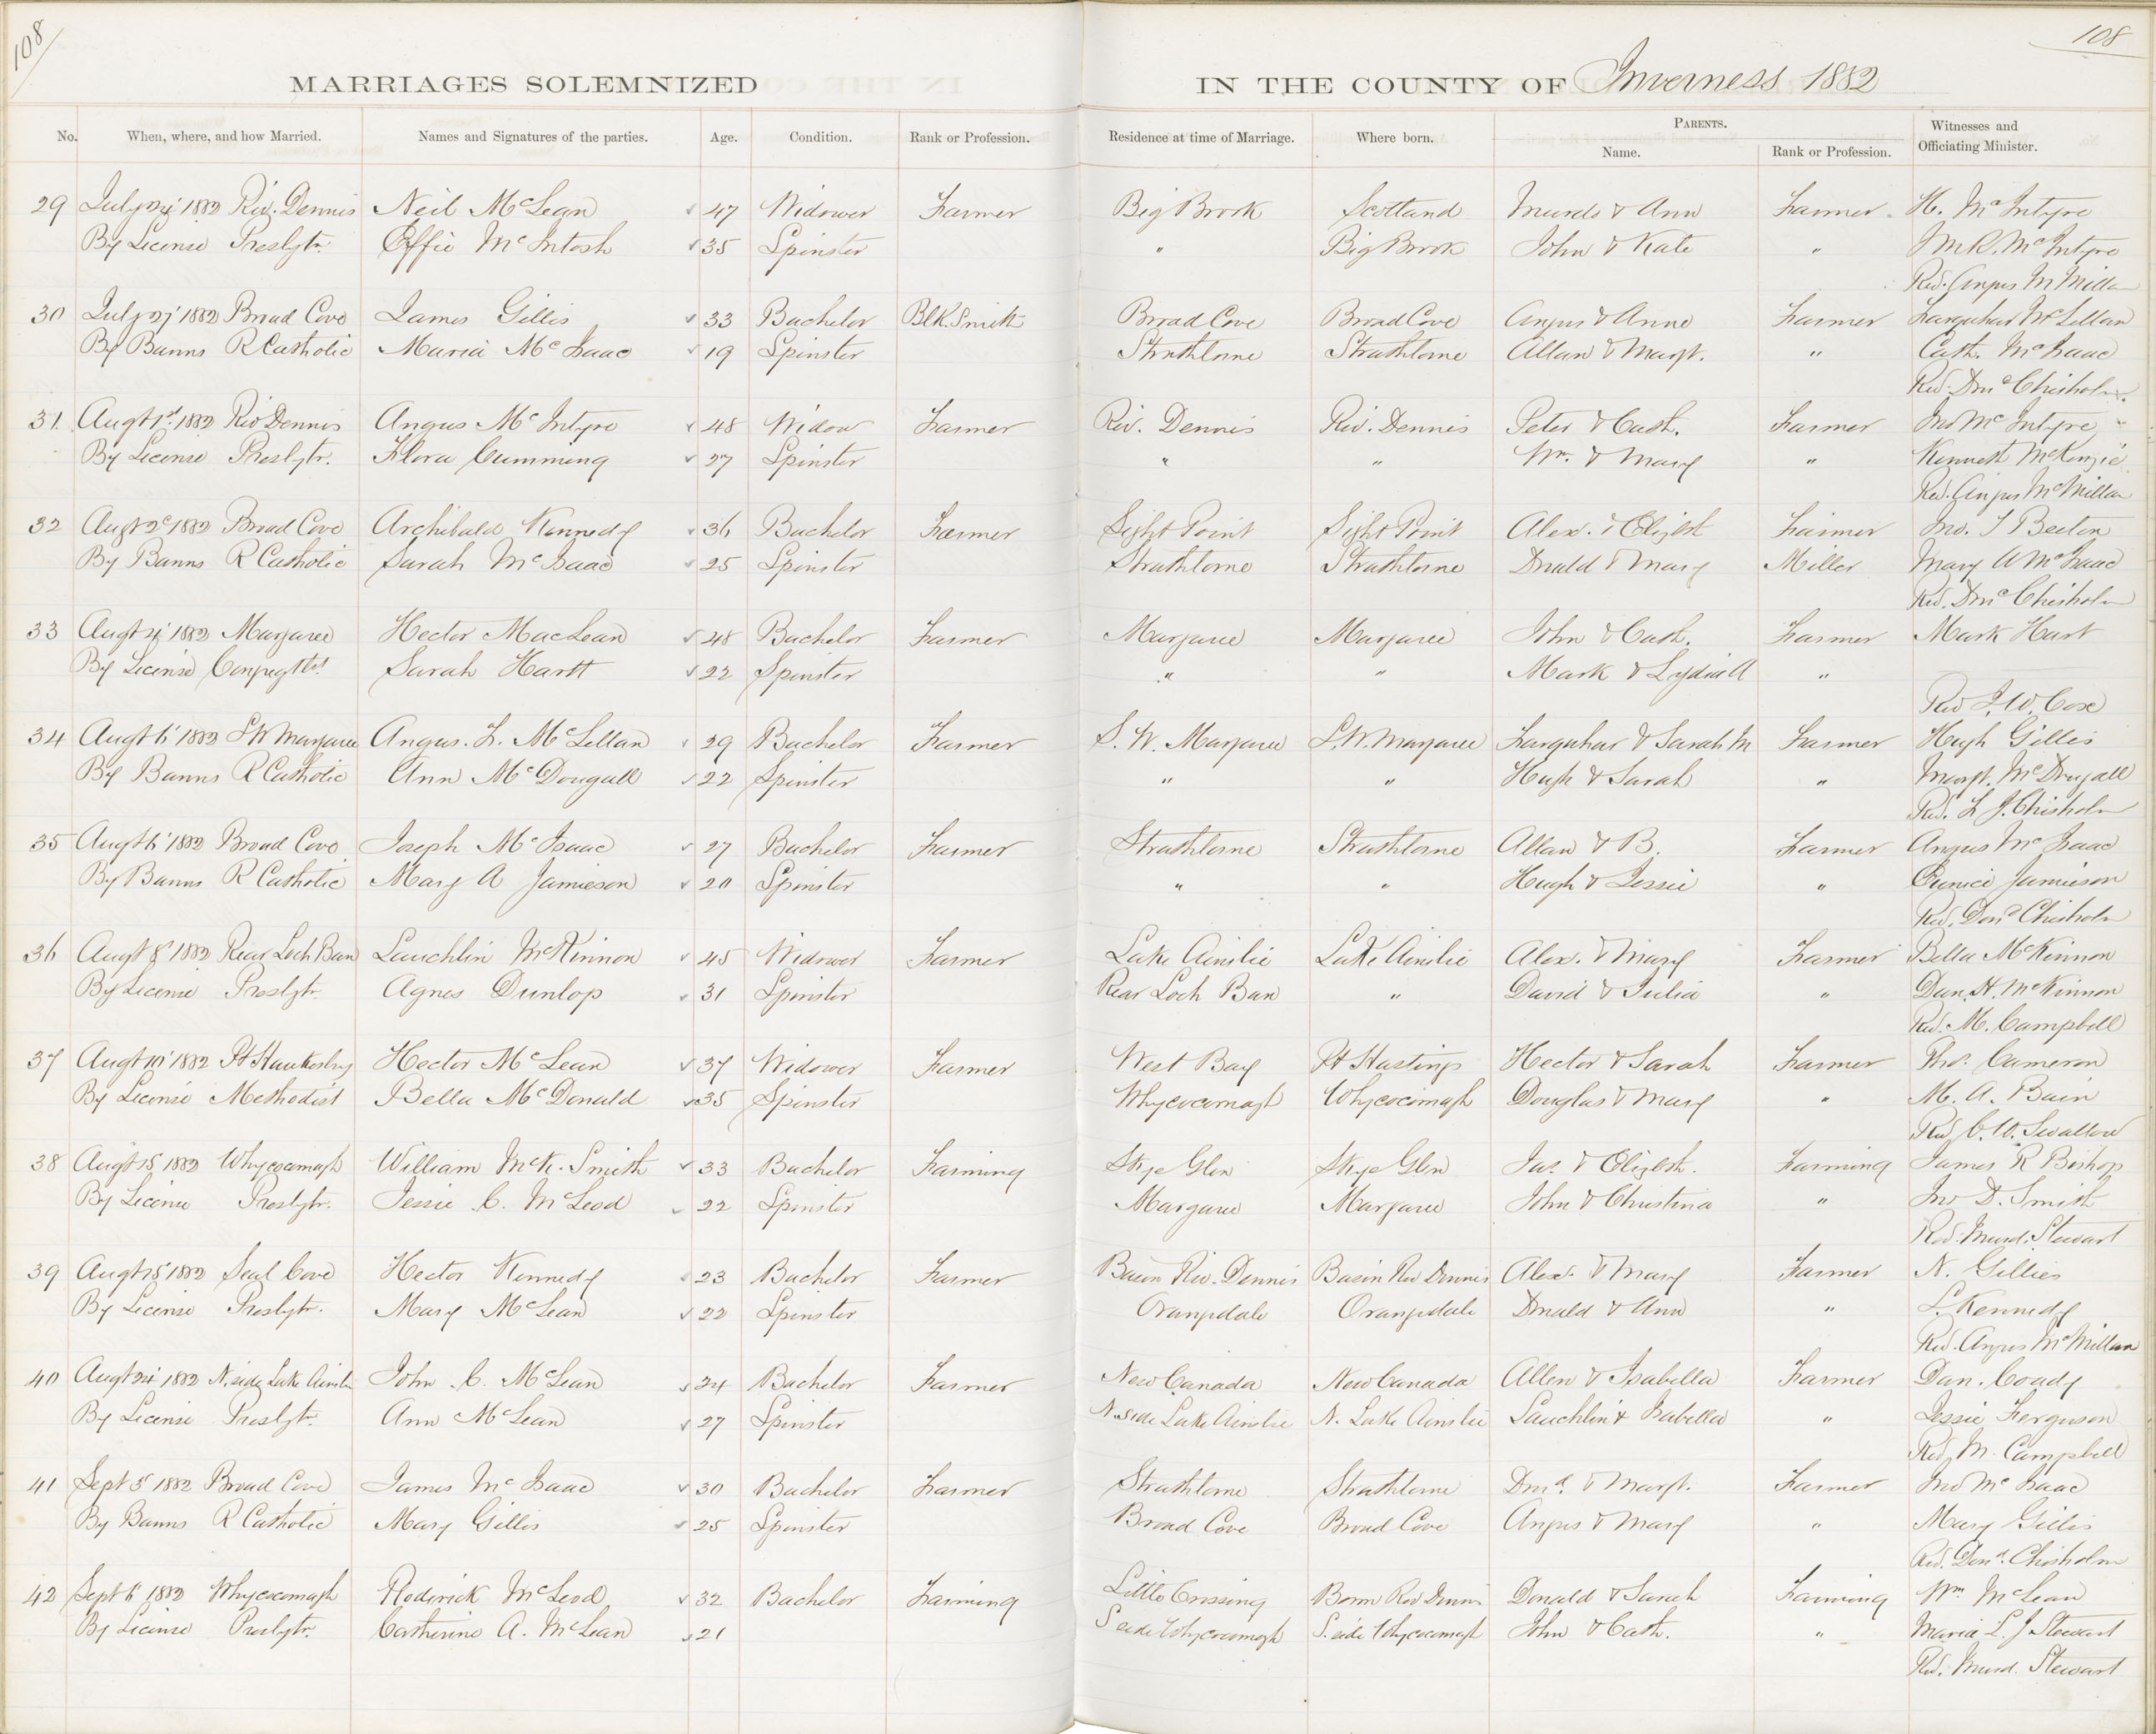 108
108
MARRIAGES SOLEMNIZED IN THE COUNTY OF Inverness 1882
No. When, where, and how Married. Names and Signatures of the parties. Age. Condition. Rank or Profession. Residence at time of Marriage. Where born. PARENTS. Name. Rank or Profession. Witnesses and Officiating Minister.
29 July 24' 1882 Riv. Dennis Neil McLean 47 Widower Farmer Big Brook Scotland Murdo & Ann Farmer H. McIntyre
By License Presbytr. Effie McIntosh 35 Spinster " Big Brook John & Kate " M R. McIntyre
Rev. Angus McMillan
30 July 27' 1882 Broad Cove James Gillis 33 Bachelor Blk. Smith Broad Cove Broad Cove Angus & Anne Farmer Farquhar McLellan
By Banns R Catholic Maria McIsaac 19 Spinster Strathlorne Strathlorne Allan & Margt. " Cath. McIsaac
Rev. Chisholm
31 Augt 1st 1882 Riv Dennis Angus McIntyre 48 Widow Farmer Riv. Dennis Riv. Dennis Peter & Cath. Farmer Jno McIntyre
By License Presbytr. Flora Cumming 27 Spinster " " Wm. & Mary " Kenneth McKenzie
Rev. Angus McMillan
32 Augt 2d 1882 Broad Cove Archibald Kennedy 36 Bachelor Farmer Sight Point Sight Point Alex. & Elizbt Farmer Jno. J Beeton
By Banns R Catholic Sarah McIsaac 25 Spinster Strathlorne Strathlorne Donald & Mary Miller Mary A McIsaac
Rev. Chisholm
33 Augt 4' 1882 Margaree Hector MacLean 48 Bachelor Farmer Margaree Margaree John & Cath. Farmer Mark Hart
By License Congregtl. Sarah Hartt 22 Spinster " " Mark & Lydia A "
Rev J. W. Cox
34 Augt 6' 1882 S W Margaree Angus. F. McLellan 29 Bachelor Farmer S. W. Margaree S. W. Margaree Farquhar & Sarah M Farmer Hugh Gillis
By Banns R Catholic Ann McDougall 22 Spinster " " Hugh & Sarah " Margt. McDougall
Rev. F J. Chisholm
35 Augt 6' 1882 Broad Cove Joseph McIsaac 27 Bachelor Farmer Strathlorne Strathlorne Allan & B. Farmer Angus McIsaac
By Banns R Catholic Mary A Jamieson 20 Spinster " " Hugh & Jessie " Eunice Jamieson
Rev. Dond Chisholm
36 Augt 8' 1882 Rear Loch Ban Lauchlin McKinnon 45 Widower Farmer Lake Ainslie Lake Ainslie Alex. & Mary Farmer Bella McKinnon
By License Presbytr. Agnes Dunlop 31 Spinster Rear Loch Ban " David & Julia " Dan. H. McKinnon
Rev. M. Campbell
37 Augt 10' 1882 Pt Hawkesbry Hector McLean 37 Widower Farmer West Bay Pt Hastings Hector & Sarah Farmer Thos. Cameron
By License Methodist Bella McDonald 35 Spinster Whycocomagh Whycocomagh Douglas & Mary " M. A. Bain
Rev C. W. Swallow
38 Augt 15 1882 Whycocomagh William McK. Smith 33 Bachelor Farming Skye Glen Skye Glen Jas. & Elizbth. Farming James R Bishop
By License Presbytr. Jessie C. McLeod 22 Spinster Margaree Margaree John & Christina " Jno D. Smith
Rev. Murd. Stewart
39 Augt 15 1882 Seal Cove Hector Kennedy 23 Bachelor Farmer Basin Riv. Dennis Basin Riv Dennis Alex. & Mary Farmer N. Gillies
By License Presbytr. Mary McLean 22 Spinster Orangedale Orangedale Donald & Ann " L. Kennedy
Rev. Angus McMillan
40 Augt 24 1882 N. side Lake Ainslie John C. McLean 24 Bachelor Farmer New Canada New Canada Allen & Isabella Farmer Dan. Coady
By License Presbytr. Ann McLean 27 Spinster N. side Lake Ainslie N. Lake Ainslie Lauchlin & Isabella " Jessie Ferguson
Rev M. Campbell
41 Sept 5' 1882 Broad Cove James McIsaac 30 Bachelor Farmer Strathlorne Strathlorne Dond. & Margt. Farmer Jno McIsaac
By Banns R Catholic Mary Gillis 25 Spinster Broad Cove Broad Cove Angus & Mary " Mary Gillis
Rev. Dond. Chisholm
42 Sept 6' 1882 Whycocomagh Roderick McLeod 32 Bachelor Farming Little Crossing Riv Dennis Donald & Sarah Farming Wm McLean
By License Presbytr. Catherine A. McLean 21 S side Whycocomagh S. side Whycocomagh John & Cath. " Maria L. J Stewart
Rev. Murd. Stewart